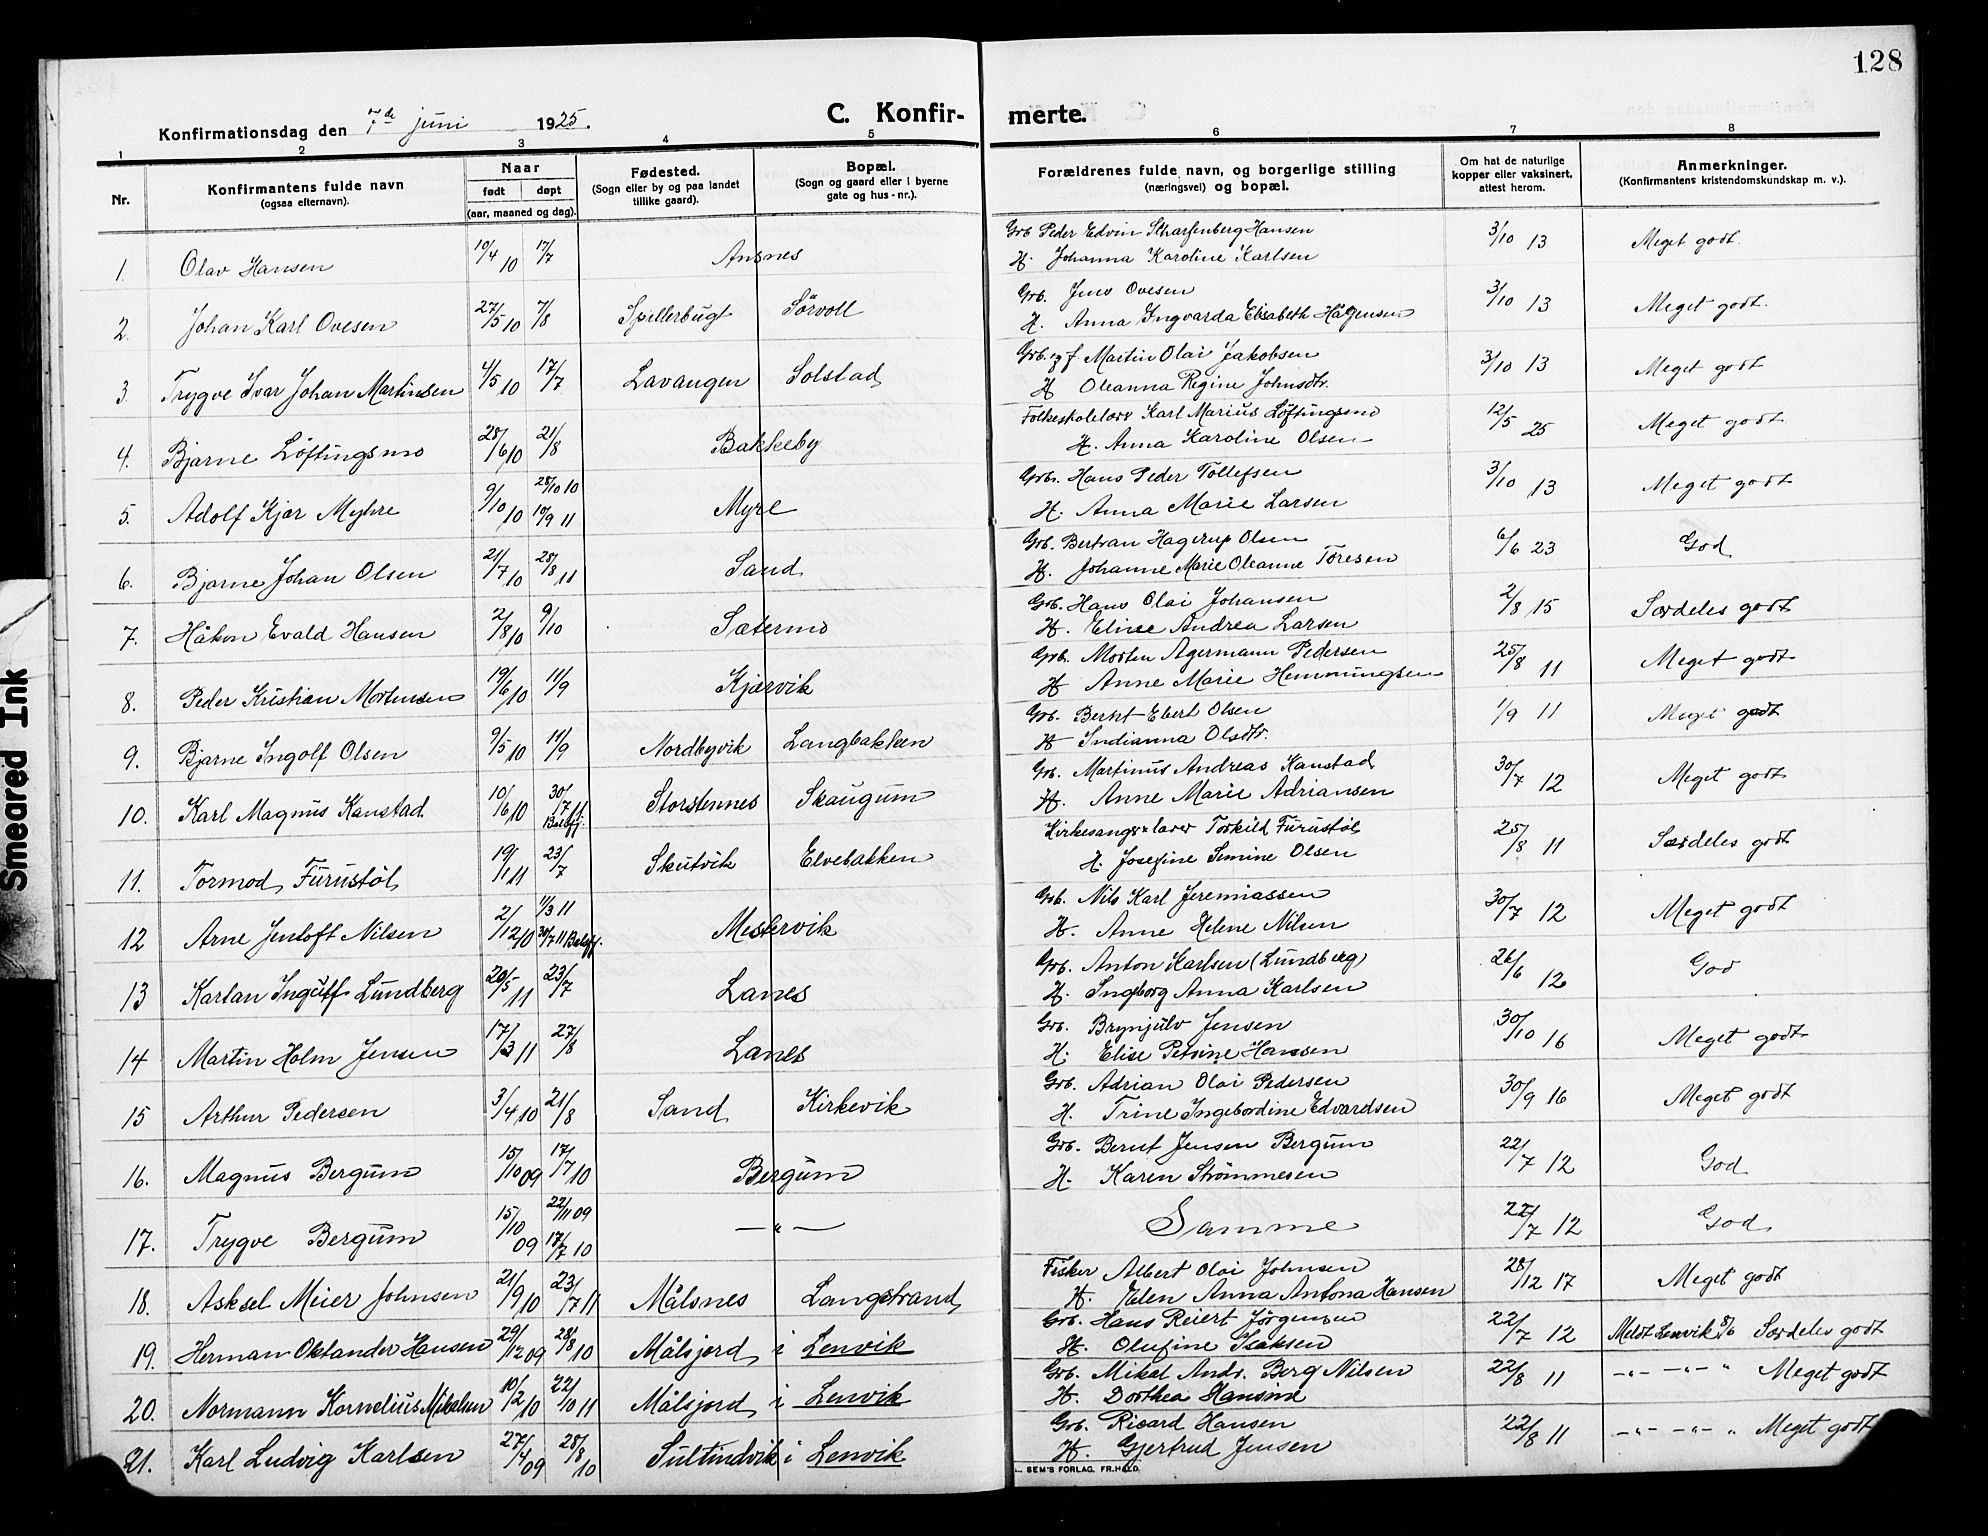 128
Konfirmationsdag den 7de juni 1925.
C. Konfirmerte.
1 2 3 4 5 6 7 8
Nr.
Konfirmantens fulde navn
(ogsaa efternavn).
Naar
født døpt
(aar, maaned og dag).
Fødested.
(Sogn eller by og paa landet
tillike gaard).
Bopæl.
(Sogn og gaard eller i byerne
gate og hus-nr.).
Forældrenes fulde navn, og borgerlige stilling
(næringsvei) og bopæl.
Om hat de naturlige
kopper eller vaksinert,
attest herom.
Anmerkninger.
(Konfirmantens kristendomskundskap m. v.).
1. Olav Hansen 10/4 10 17/7 Ansnes Grb Peder Edvin Scharfenberg Hansen 3/10 13 Meget godt.
H. Johanna Karoline Karlsen
2. Johan Karl Ovesen 27/5 10 7/8 Spillerbugt Sörvoll Grb. Jens Ovesen 3/10 13 Meget godt.
H. Anna Ingvarda Elisabeth Hågensen
3. Trygve Ivar Johan Martinsen 4/5 10 17/7 Lavangen Solstad Grb. og f. Martin Olai Jakobsen 3/10 13 Meget godt
H Oleanna Regine Johnsdtr.
4. Bjarne Löftingsmo 28/6 10 21/8 Bakkeby Folkeskolelærer Karl Marius Löftingsmo 12/5 25 Meget godt
H. Anna Karoline Olsen
5. Adolf Kjær Myhre 9/10 10 28/10 10 10/9 11 Myre Grbr. Hans Peder Tollefsen 3/10 13 Meget godt
H. Anna Marie Larsen
6. Bjarne Johan Olsen 21/7 10 28/8 11 Sand Grb. Bertran Hagerup Olsen 6/6 23 God
H. Johanne Marie Oleanne Toresen
7. Håkon Evald Hansen 2/8 10 9/10 Sætermo Grb. Hans Olai Johansen 2/8 15 Særdeles godt
H. Elise Andrea Larsen
8. Peder Kristian Mortensen 19/6 10 11/9 Kjærvik Grb. Morten Agermann Pedersen 25/8 11 Meget godt
H Anne Marie Hemmingsen
9. Bjarne Ingolf Olsen 9/5 10 11/9 Nordbyvik Langbakken Grb. Bernt Ebert Olsen 1/9 11 Meget godt
H Indianna Olsdtr.
10. Karl Magnus Kanstad 10/6 10 30/7 11 Balsfj. Storstennes Skaugum Grb. Martinus Andreas Kanstad 30/7 12 Meget godt
H. Anne Marie Adriansen
11. Tormod Furustøl 19/1 11 23/7 Skutvik Elvebakken Kirkesanger & lærer Torkild Furustøl 25/8 11 Særdeles godt
H. Josefine Simine Olsen
12 Arne Jentoft Nilsen 2/12 10 1/3 11 30/7 11 Balsfj. Mestervik Grb. Nils Karl Jeremiassen 30/7 12 Meget godt
H. Anne Helene Nilsen
13 Karlan Inguff Lundberg 20/5 11 23/7 Lanes Grb. Anton Karlsen (Lundberg) 26/6 12 God
H. Ingborg Anna Karlsen
14 Martin Holm Jensen 17/3 11 27/8 Lanes Grb. Brynjulv Jensen 30/10 16 Meget godt
H; Elise Petrine Hansen
15 Arthur Pedersen 3/4 10 21/8 Sand Kirkevik Grb. Adrian Olai Pedersen 30/9 16 Meget godt
H. Trine Ingebordine Edvardsen
16. Magnus Bergum 15/10 09 17/7 10 Bergum Grb. Bernt Jensen Bergum 22/7 12 God
H. Karen Strömmesen
17. Trygve Bergum 15/10 09 22/11 09 17/7 10 — " — Samme 22/7 12 God
18. Asksel Meier Johnsen 21/9 10 23/7 11 Målsnes Langstrand Fisker Albert Olai Johnsen 28/12 17 Meget godt
H. Elen Anna Antona Hansen
19. Herman Oktander Hansen 29/12 09 28/8 10 Målsjord i Lenvik Grb. Hans Reiert Jörgensen 22/7 12 Meldt Lenvik 8/6 Særdeles godt
H. Olufine Isaksen
20. Normann Kornelius Mikalsen 10/2 10 22/10 11 Målsjord i Lenvik Grb. Mikal Andr. Berg Nilsen 22/8 11 —"— —"— " Meget godt
H. Dorthea Hansine
21. Karl Ludvig Karlsen 27/4 09 28/8 10 Sultindvik i Lenvik Grb. Ricard Hansen 22/8 11 —"— —"— " Meget godt
H. Gjertrud Jensen
SEM'S FORLAG, FR.HALD.
Smeared Ink